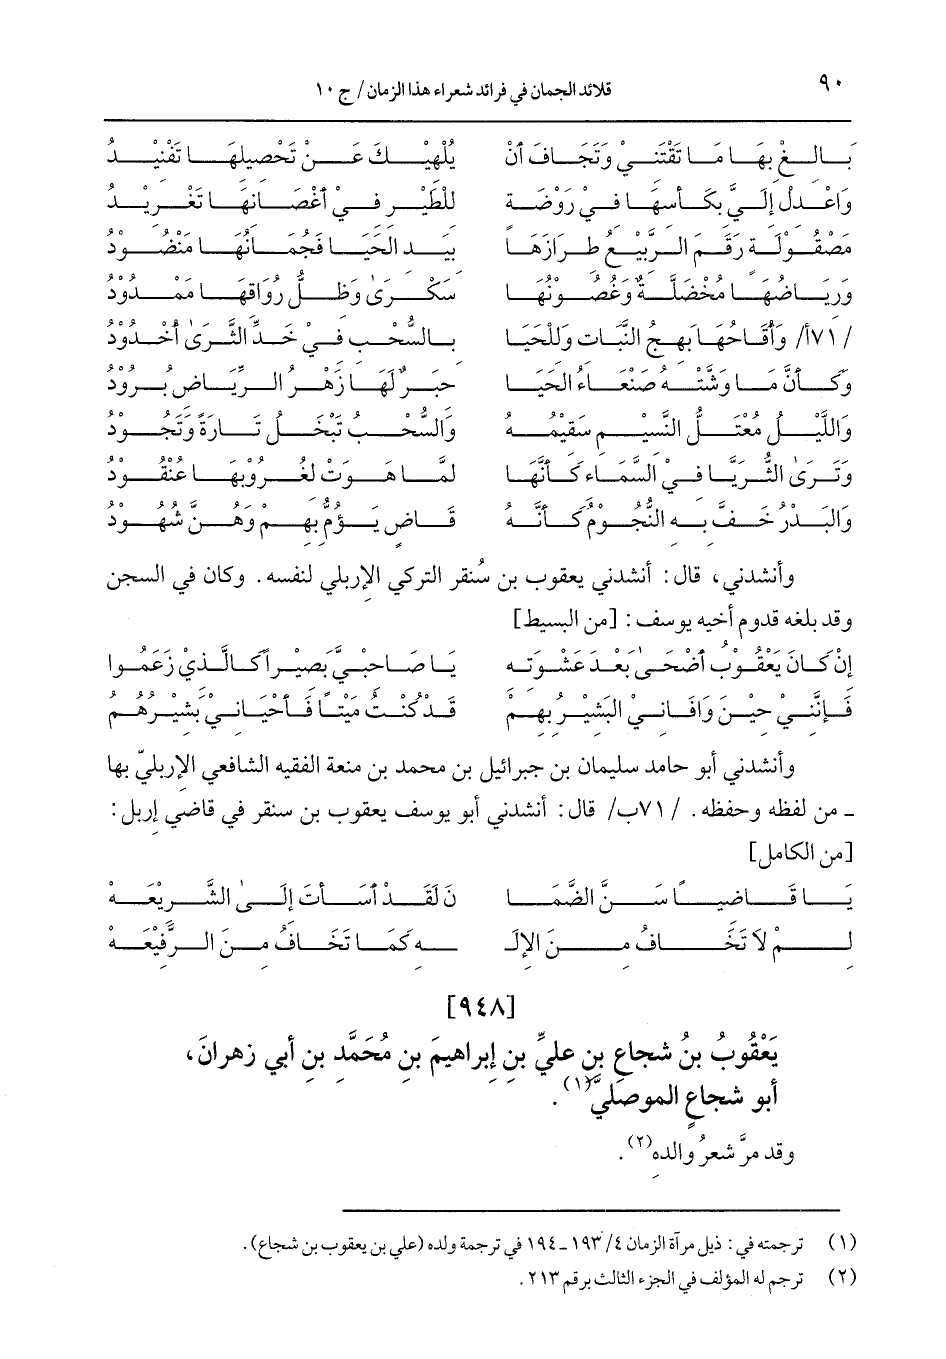 ٩٠
قلائد الجمان في فرائد شعراء هذا الزمان/ ج ١٠
بَالِغْ بِهَا مَا تَقْتَنِيْ وَتَجَافَ أَنْ يُلْهِيْكَ عَنْ تَحْصِيلِهَا تَفْنِيْدُ
وَاعْدِلْ إِلَيَّ بِكَأْسِهَا فِيْ رَوْضَةٍ لِلطَّيْرِ فِيْ أَغْصَانِهَا تَغْرِيْدُ
مَصْقُولَةٍ رَقَمَ الرَّبِيْعُ طِرَازَهَا بِيَدِ الحَيَا فَجُمَانُهَا مَنْضُودُ
وَرِيَاضُهَا مُخْضَلَّةٌ وَغُصُونُهَا سَكْرَىٰ وَظِلُّ رُوَاقِهَا مَمْدُودُ
/٧١أ/ وَأَقَاحُهَا بَهِجُ النَّبَاتِ وَلِلْحَيَا بِالسُّحْبِ فِيْ خَدِّ الثَّرَىٰ أُخْدُودُ
وَكَأَنَّ مَا وَشَّتْهُ صَنْعَاءُ الحَيَا حِبَرٌ لَهَا زَهْرُ الرِّيَاضِ بُرُودُ
وَاللَّيْلُ مُعْتَلُّ النَّسِيْمِ سَقِيْمُهُ وَالسُّحْبُ تَبْخَلُ تَارَةً وَتَجُودُ
وَتَرَىٰ الثُّرَيَّا فِيْ السَّمَاءِ كَأَنَّهَا لَمَّا هَوَتْ لِغُرُوبِهَا عُنْقُودُ
وَالبَدْرُ خَفَّ بِهِ النُّجُومُ كَأَنَّهُ قَاضٍ يَؤُمُّ بِهِمْ وَهُنَّ شُهُودُ
وأنشدني، قال: أنشدني يعقوب بن سُنقرِ التركي الإربلي لنفسه. وكان في السجن
وقد بلغه قدوم أخيه يوسف: [من البسيط]
إِنْ كَانَ يَعْقُوبُ أَضْحَىٰ بَعْدَ عَشْوَتِهِ يَا صَاحِبَيَّ بَصِيْراً كَالَّذِيْ زَعَمُوا
فَإِنَّنِيْ حِيْنَ وَافَانِيْ البَشِيْرُ بِهِمْ قَدْ كُنْتُ مَيْتاً فَأَحْيَانِيْ بَشِيْرُهُمُ
وأنشدني أبو حامد سليمان بن جبرائيل بن محمد بن منعة الفقيه الشافعي الإربليّ بها
ـ من لفظه وحفظه. /٧١ب/ قال: أنشدني أبو يوسف يعقوب بن سنقر في قاضي إربل:
[من الكامل]
يَا قَاضِياً سَنَّ الضَّمَا نَ لَقَدْ أَسَأْتَ إِلَىٰ الشَّرِيْعَهْ
لِمْ لاَ تَخَافُ مِنَ الإِلَـ ـهِ كَمَا تَخَافُ مِنَ الرَّفِيْعَهْ
[٩٤٨]
يَعْقُوبُ بنُ شجاعِ بنِ عليِّ بنِ إبراهيمَ بنِ مُحَمَّدِ بنِ أبي زهرانَ،
أبو شجاعٍ الموصليُّ(١).
وقد مرَّ شعرُ والدِهِ(٢).
(١) ترجمته في: ذيل مرآة الزمان ٤/ ١٩٣ ـ ١٩٤ في ترجمة ولده (علي بن يعقوب بن شجاع).
(٢) ترجم له المؤلف في الجزء الثالث برقم ٢١٣.